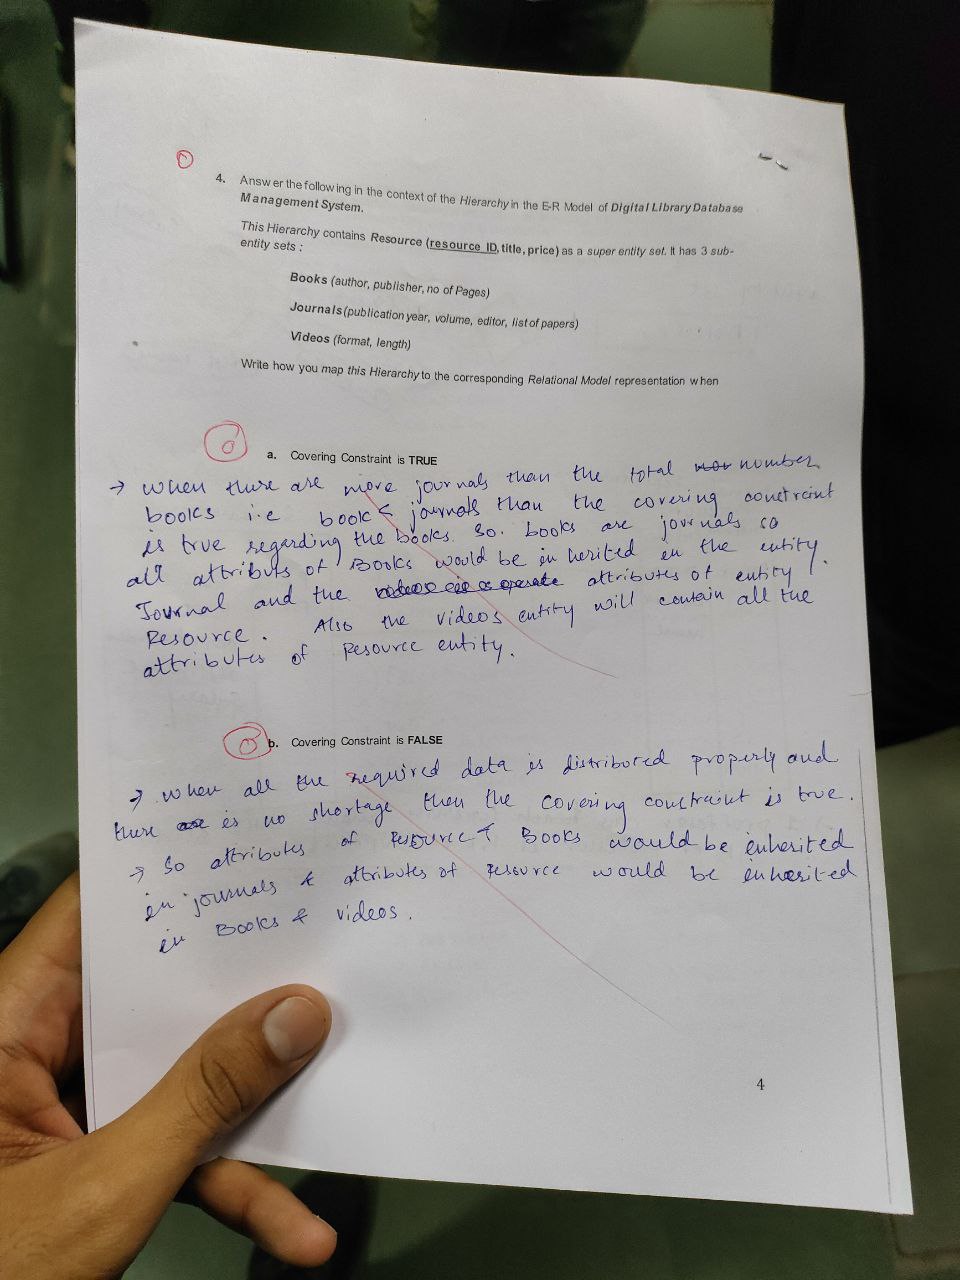 0
4. Answer the following in the context of the Hierarchy in the E-R Model of Digital Library Database
Management System.
This Hierarchy contains Resource (resource_ID, title, price) as a super entity set. It has 3 sub-
entity sets :
Books (author, publisher, no of Pages)
Journals (publication year, volume, editor, list of papers)
Videos (format, length)
Write how you map this Hierarchy to the corresponding Relational Model representation when
0
a. Covering Constraint is TRUE
→ when there are more journals than the total number
books i.e book < journals than the covering constraint
is true regarding the books. So. books are journals so
all attributs of Books would be in herited in the entity.
Journal and the attributes of entity
Resource. Also the videos entity will contain all the
attributes of Resource entity.
0
b. Covering Constraint is FALSE
→ when all the required data is distributed properly and
there is no shortage then the covering constraint is true.
→ So attributes of Resource & Books would be inherited
in journals & attributes of resource would be inherited
in Books & videos.
4